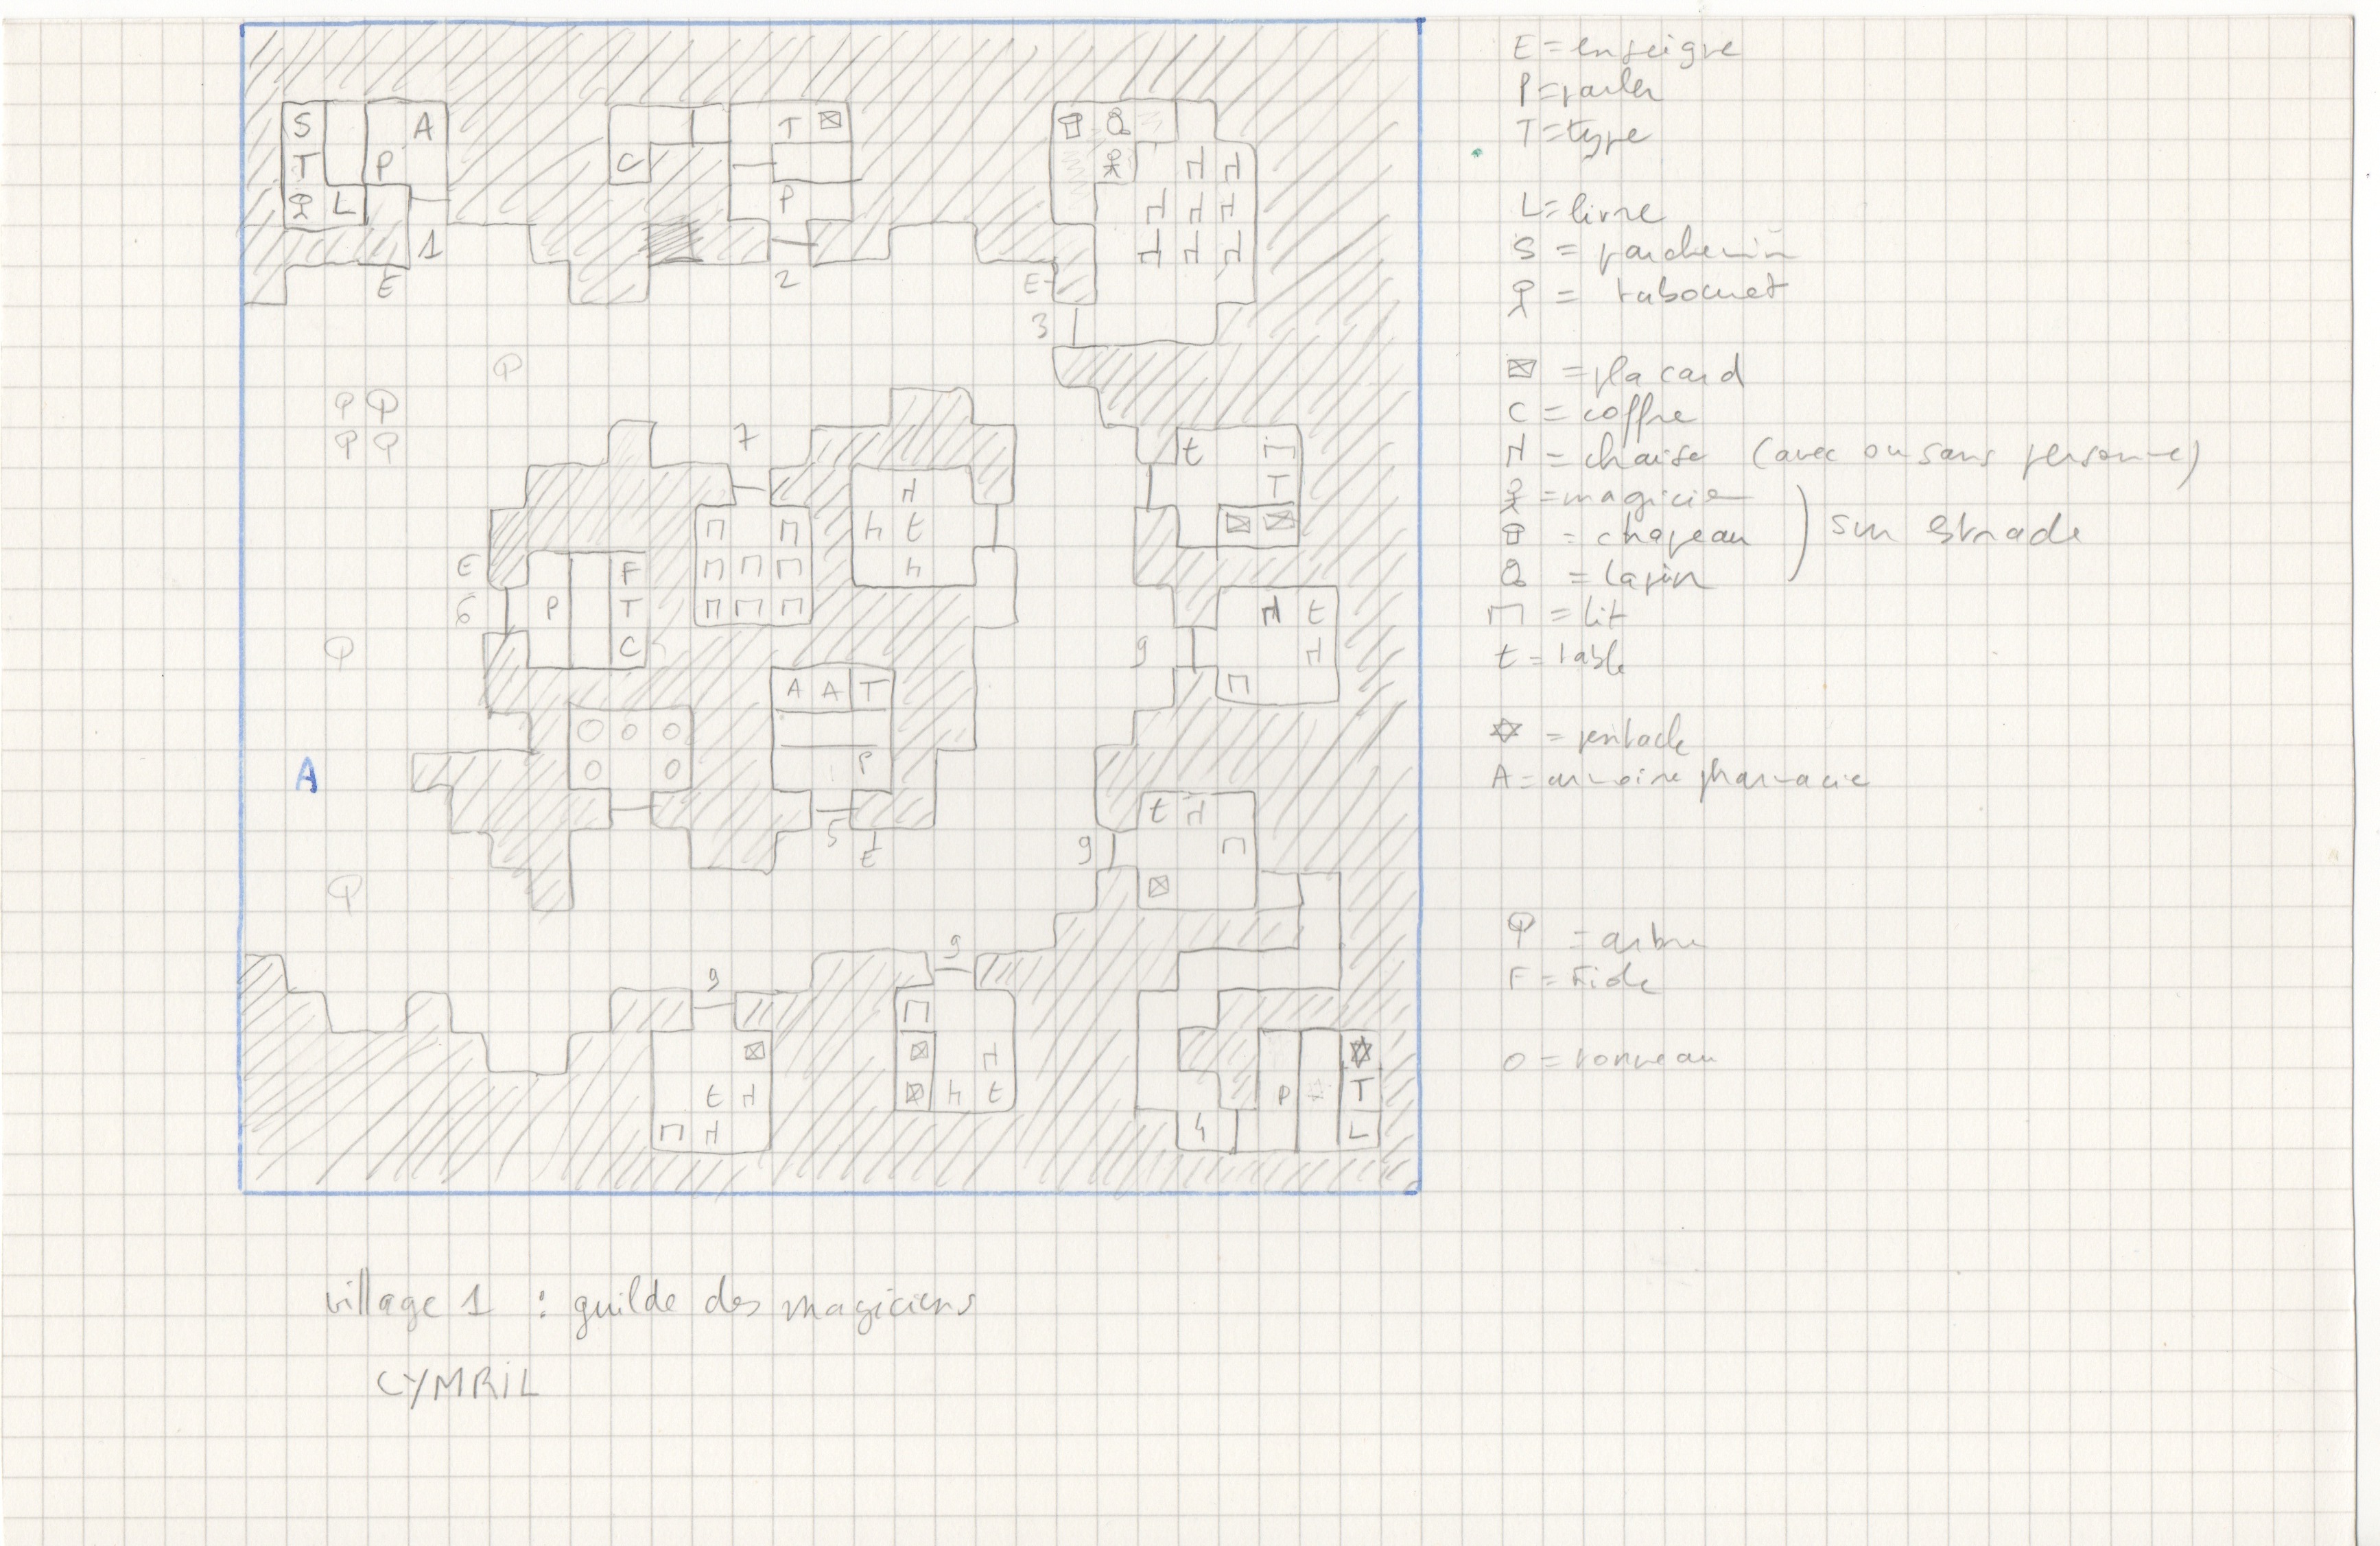 S A T C T
T P
L P
1 2
E E
3
7
t
T
H
H t
h
E P F
6 T
C
H t
9 H
A A T
A P
5 E
t H
9
9
9
t H
H
H
h t
P T
4 L
E = enseigne
P = parler
T = type
L = livre
S = parchemin
= tabouret
= placard
C = coffre
= chaise (avec ou sans personne)
= magicien
= chapeau
= lapin
sur estrade
= lit
t = table
= pentacle
A = armoire pharmacie
= arbre
F = Fiole
O = tonneau
village 1 : guilde des magiciens
CYMRiL